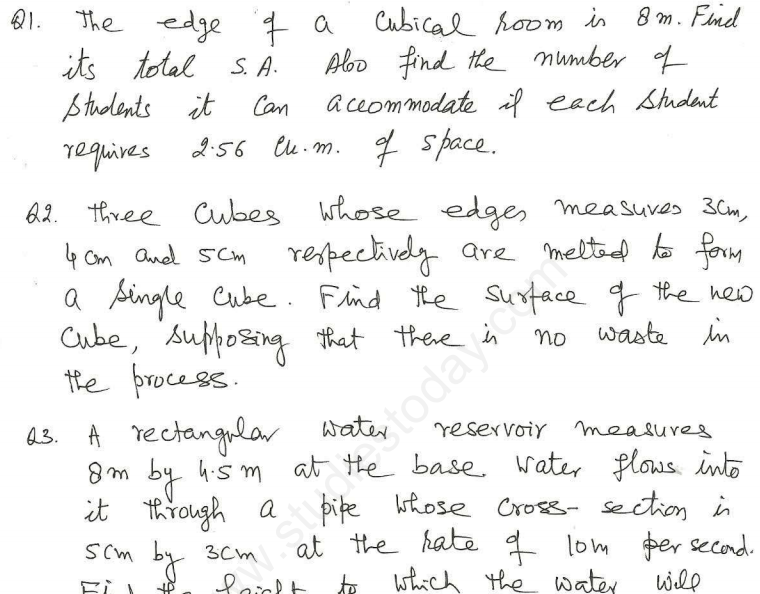 Q1. The edge of a Cubical room is 8 m. Find
its total S.A. Also find the number of
Students it Can accommodate if each Student
requires 2.56 Cu.m. of space.
Q2. Three Cubes Whose edges measures 3cm,
4 cm and 5cm respectively are melted to form
a Single Cube. Find the Surface of the new
Cube, Supposing that there is no waste in
the process.
Q3. A rectangular water reservoir measures
8m by 4.5m at the base. Water flows into
it through a pipe whose cross-section is
5cm by 3cm at the rate of 10m per second.
Find the height to which the water will
www.studiestoday.com